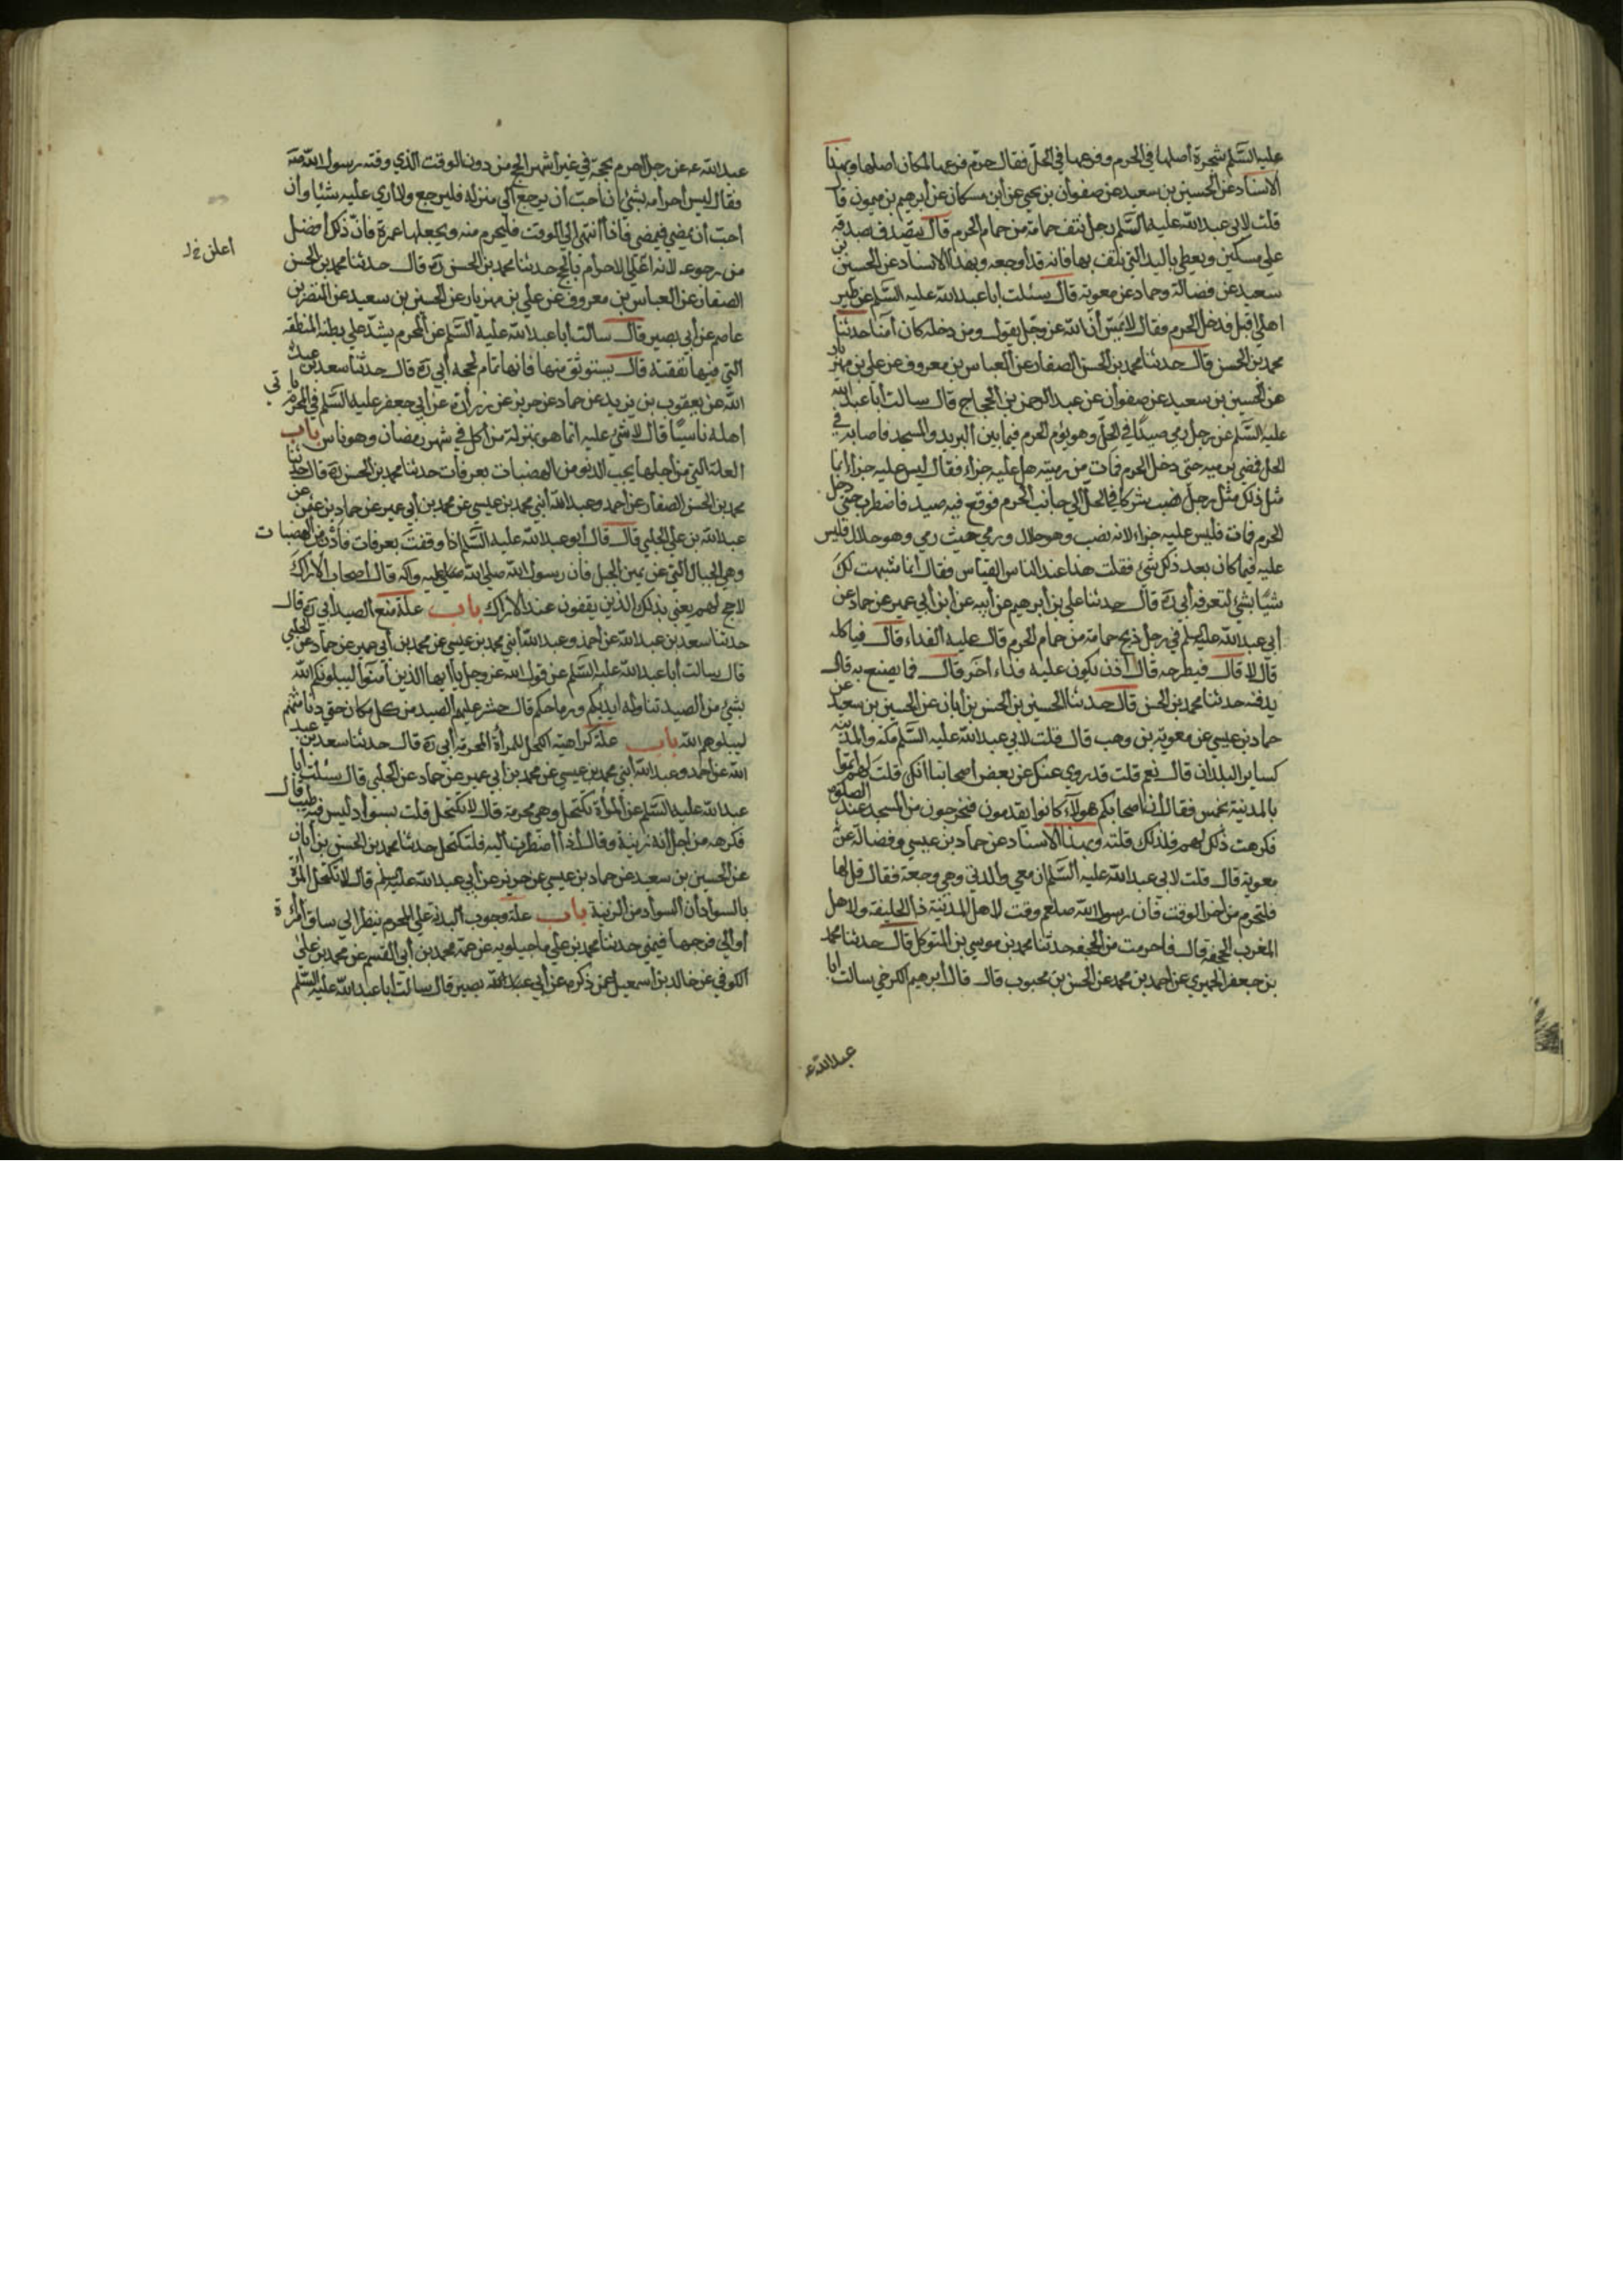 عليه السّلم شجرة أصلها في الحرم وفرعها في الحلّ فقال حرّم فرعها لمكان اصلها وبهذا
الاسناد عن الحسين بن سعيد عن صفوان بن يحيى عن ابن مسكان عن ابرهيم بن ميمون قا
قلت لابي عبد الله عليه السّلم رجل نتف حمامة من حمام الحرم قال يتصدّق بصدقة
على مسكين ويعطي باليد التي نتف بها فانه قد أوجعه وبهذا الاسناد عن الحسين بن
سعيد عن فضالة وحماد عن معوية قال سئلت ابا عبد الله عليه السّلم عن طير
اهلي اقبل فدخل الحرم فقال لا يمسّ أنّ الله عز وجل يقول ومن دخله كان آمنا حدثنا
محمد بن الحسن قال حدثنا محمد بن الحسن الصفار عن العباس بن معروف عن علي بن مهزيار
عن الحسين بن سعيد عن صفوان عن عبد الرحمن بن الحجاج قال سالت أبا عبد الله
عليه السّلم عن رجل رمى صيدًا في الحلّ وهو يؤم الحرم فيما بين البريد والمسجد فاصابه في
الحل فمضى برميه حتى دخل الحرم فمات من رميته هل عليه جزاء فقال ليس عليه جزاء انما
مثل ذلك مثل رجل نصب شركا في الحلّ الى جانب الحرم فوقع فيه صيد فاضطرب حتى دخل
الحرم فمات فليس عليه جزاء لانه نصب وهو حلال ورمى حيث رمى وهو حلال فليس
عليه فيما كان بعد ذلك شيء فقلت هذا عند الناس القياس فقال انما شبهت لك
شيًا بشي لتعرفه أبي ره قال حدثنا علي بن أبرهيم عن أبيه عن ابن أبي عمير عن حماد عن
أبي عبد الله عليه السلم في رجل ذبح حمامة من حمام الحرم قال عليه الفداء قال فياكله
قال لا قال فيطرحه قال اذن يكون عليه فداء أخر قال فما يصنع به قال
يدفنه حدثنا محمد بن الحسن قال حدثنا الحسين بن الحسن بن أبان عن الحسين بن سعيد عن
حماد بن عيسى عن معوية بن وهب قال قلت لابي عبد الله عليه السّلم مكة والمدينة
كساير البلدان قال نعم قلت قد روى عنك بعض أصحابنا انك قلت لهم اتموا
بالمدينة بخمس فقال أن اصحابكم هولاء كانوا يقدمون فيخرجون من المسجد عند الصلوة
فكرهت ذلك لهم فلذلك قلته وبهذا الاسناد عن حماد بن عيسى وفضالة عن
معوية قال قلت لابي عبد الله عليه السّلم ان معي والدتي وهي وجعة فقال قل لها
فلتحرم من اخر الوقت فان رسول الله صلعم وقت لاهل المدينة ذا الحليفة ولاهل
المغرب الجحفة قال فاحرمت من الجحفة حدثنا محمد بن موسى بن المتوكل قال حدثنا محمد
بن جعفر الحميري عن احمد بن محمد عن الحسن بن محبوب قال قال أبرهيم الكرخي سالت ابا
عبد الله ع
عبد الله ع عن رجل احرم بحجة في غير أشهر الحج من دون الوقت الذي وقته رسول الله
فقال ليس أحرامه بشئ ان أحبّ أن يرجع الى منزله فليرجع ولا أرى عليه شيئا وأن
أحبّ أن يمضي فيمضي فاذا أنتهى الى الوقت فليحرم منه ويجعلها عمرة فانّ ذلك أفضل
من رجوعه لانه اعلن الاحرام بالحج حدثنا محمد بن الحسن ره قال حدثنا محمد بن الحسن
أعلن خ ل
الصفار عن العباس بن معروف عن علي بن مهزيار عن الحسين بن سعيد عن النضر بن
عاصم عن أبي بصير قال سالت أبا عبد الله عليه السّلم عن المحرم يشدّ على بطنه المنطقه
التي فيها نفقته قال يستوثق منها فانها تمام لحجه أبي ره قال حدثنا سعد بن عبد
الله عن يعقوب بن يزيد عن حماد عن حريز عن زرارة عن أبي جعفر عليه السّلم في المحرم ياتى
اهله ناسيًا قال لا شئ عليه انما هو بمنزلة من أكل في شهر رمضان وهو ناس باب
العلة التي من أجلها يجب الدنو من الهضبات بعرفات حدثنا محمد بن الحسن ره قال حدثنا
محمد بن الحسن الصفار عن أحمد وعبد الله أبني محمد بن عيسى عن محمد بن أبي عمير عن حماد بن عثمن عن
عبد الله بن علي الحلبي قال قال أبو عبد الله عليه السّلم اذا وقفت بعرفات فأدن من الهضبات
وهي الجبال التي عن يمين الجبل فان رسول الله صلى الله عليه وآله قال أصحاب الاراك
لا حج لهم يعني بذلك الذين يقفون عند الاراك باب علة منع الصيد أبي ره قال
حدثنا سعد بن عبد الله عن أحمد وعبد الله أبني محمد بن عيسى عن محمد بن أبي عمير عن حماد عن الحلبي
قال سالت أبا عبد الله عليه السّلم عن قول الله عز وجل يا أيها الذين آمنوا ليبلونكم الله
بشئ من الصيد تناوله ايديكم ورماحكم قال حشر عليهم الصيد من كل مكان حتى دنا منهم
ليبلوهم الله باب علة كراهية الكحل للمرأة المحرمة أبي ره قال حدثنا سعد بن عبد
الله عن احمد وعبد الله ابني محمد بن عيسى عن محمد بن أبي عمير عن حماد عن الحلبي قال سئلت ابا
عبد الله عليه السّلم عن المرأة تكتحل وهي محرمة قال لا تكتحل قلت بسواد ليس فيه طيب قال
فكرهه من أجل أنه زينة وقال أذا أضطرت اليه فلتكتحل حدثنا محمد بن الحسن بن أبان
عن الحسين بن سعيد عن حماد بن عيسى عن حريز عن أبي عبد الله عليه السلم قال لا تكتحل المرأة
بالسواد أن السواد من الزينة باب علة وجوب البدنة على المحرم ينظر الى ساق أمرءة
أو الى فرجها فيمني حدثنا محمد بن علي ماجيلويه عن عمه محمد بن أبي القسم عن محمد بن علي
الكوفي عن خالد بن اسمعيل عمن ذكره عن أبي بصير قال سالت أبا عبد الله عليه السّلم